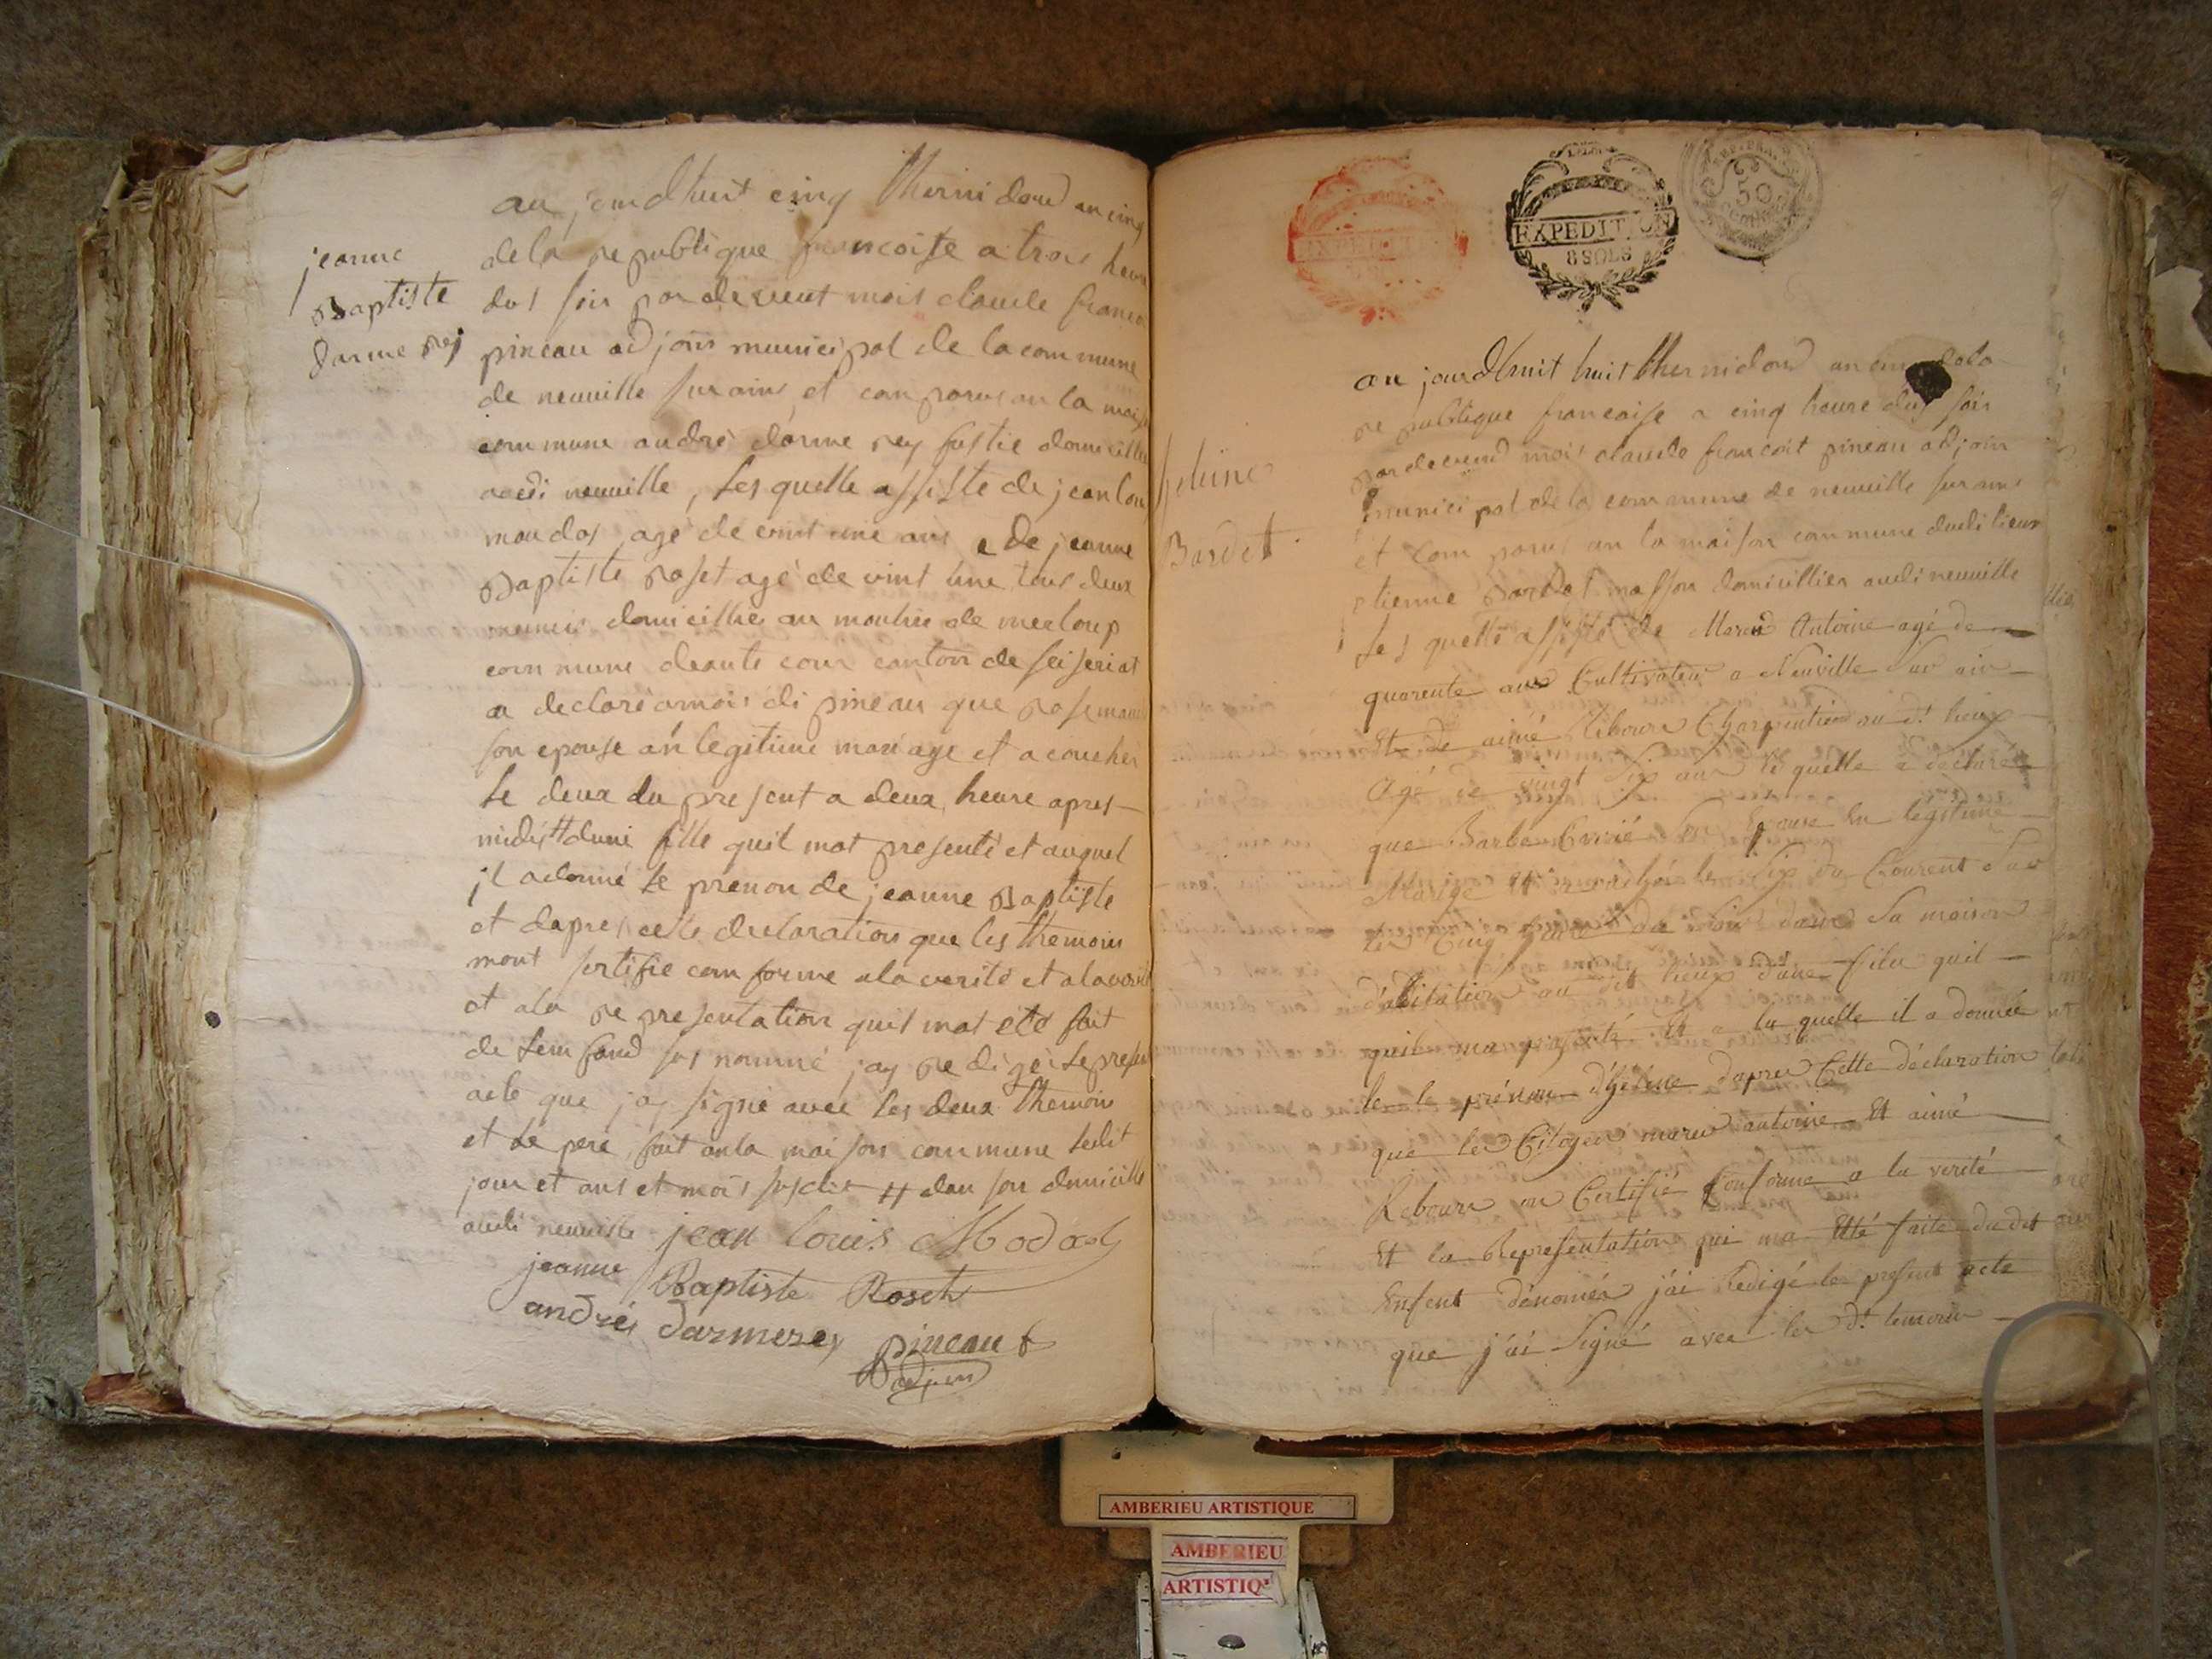 jeanne
Baptiste
darme rey
au jourdhuit cinq thermidord an cinq
dela republique francoise a trois heur
dus soir par devent mois claude francoi
pineau adjoin municipal de la commune
de neuville sur ains et comparus an la mais
commune andré darme rey domicillie
audi neuville, lesquelle assiste de jean loui
modas agé de vint une ans e de jeanne
Baptiste roset agé de vint une tous deux
domicillie au moulin de merloup
commune deaute cour canton de seiseriat
a declaré amois di pineau que rose
son epouse an legitime mariage et acouchéi
le deux du present a deux heure apres
midis # dune fille quil mat presenté et auquel
jl adonné le prenon de jeanne Baptiste
et dapres cette declaration que les themoins
mont sertifie conforme ala verité et
et ala representation quil mat eté fait
de lenfand sus nommé jay redigéi le present
acte que jay signé avec les deux themoin
et le pere, fait anla maison commune ledit
jour et ans et mois susdit # dan son domicille
audi neuville jean louis Modas
jeanne Baptiste Roset
andréi darmerey pineau
adjoin
EXPEDITION
EXPEDITION
8 SOLS
50
Heleine
Bardet
au jourdhuit huit thermidord an cinq dela
republique francaise a cinq heure dus soir
pardevend mois claude francoit pineau adjoin
municipal dela commune de neuville sur ains
et comparus an la maison commune dudi lieux
etienne Bardet masson domicillier audi neuville
lesquelle assisté de Morud Antoine agé de
quarente ans Cultivateur a Neuville sur ain
Et de aimé Reboure Charpentier au dt lieux
Agé de vingt six ans le quelle a déclarée
que Barbe son Epouse En légitime
Mariage Et acouchée le six du Courent sur
les Cinq heure du soir dans sa maison
d'abitation au dit lieux d'une fille quil
quil ma présenté Et a la quelle il a donnée
le le prénom d'héléne dapres Cette déclaration
que les Citoyen antoine Et aimé
Reboure on Certifié Conforme a la verité
Et la Representation qui ma Etté faite du dit
Enfent dénomée j'ai Redigé le présent acte
que j'ai Signé avec les dt temoin
AMBERIEU ARTISTIQUE
AMBERIEU
ARTISTIQ